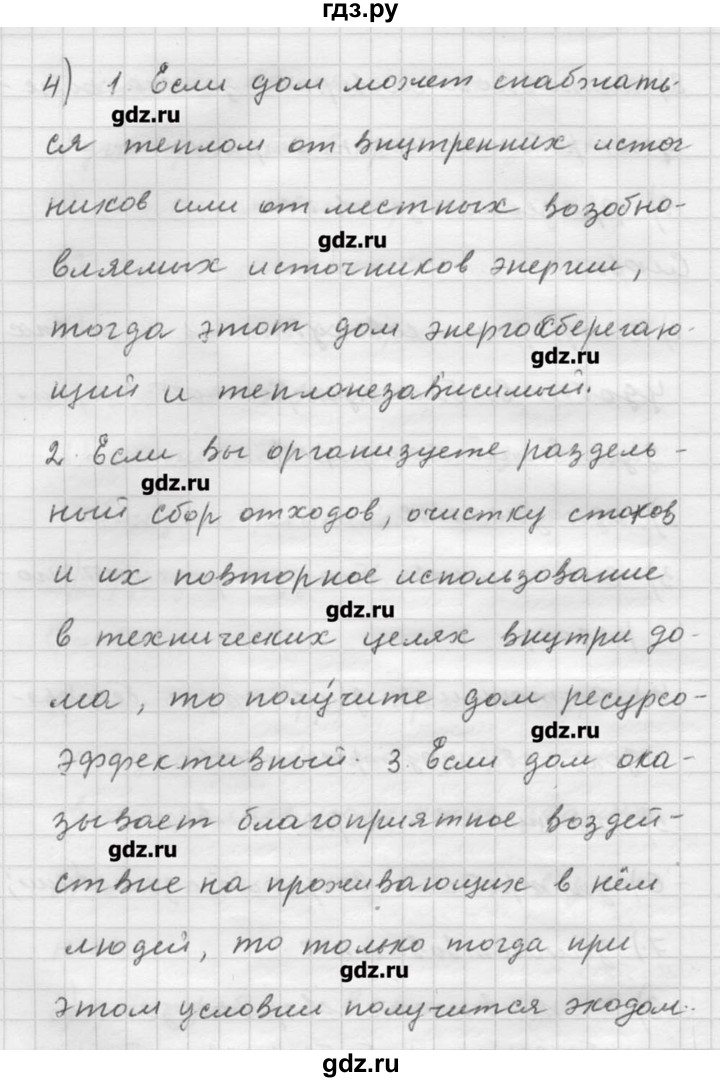 гдз.ру
4) 1. Если дом может снабжать-
gdz.ru
ся теплом от внутренних источ
ников или от местных возобно-
gdz.ru
вляемых источников энергии,
тогда этот дом энергосберегаю-
gdz.ru
щий и теплонезависимый.
2. Если вы организуете раздель-
gdz.ru
ный сбор отходов, очистку стоков
и их повторное использование
gdz.ru
в технических целях внутри до-
ма, то полу́чите дом ресурсо-
gdz.ru
эффективный. 3. Если дом ока-
зывает благоприятное воздей-
gdz.ru
ствие на проживающих в нём
людей, то только тогда при
gdz.ru
этом условии получится экодом.
gdz.ru